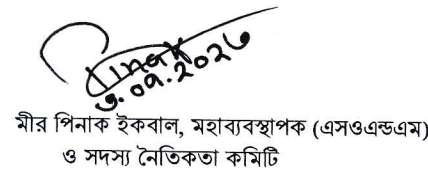 Pinak
৩.০৭.২০২৩
মীর পিনাক ইকবাল, মহাব্যবস্থাপক (এসওএন্ডএম)
ও সদস্য নৈতিকতা কমিটি